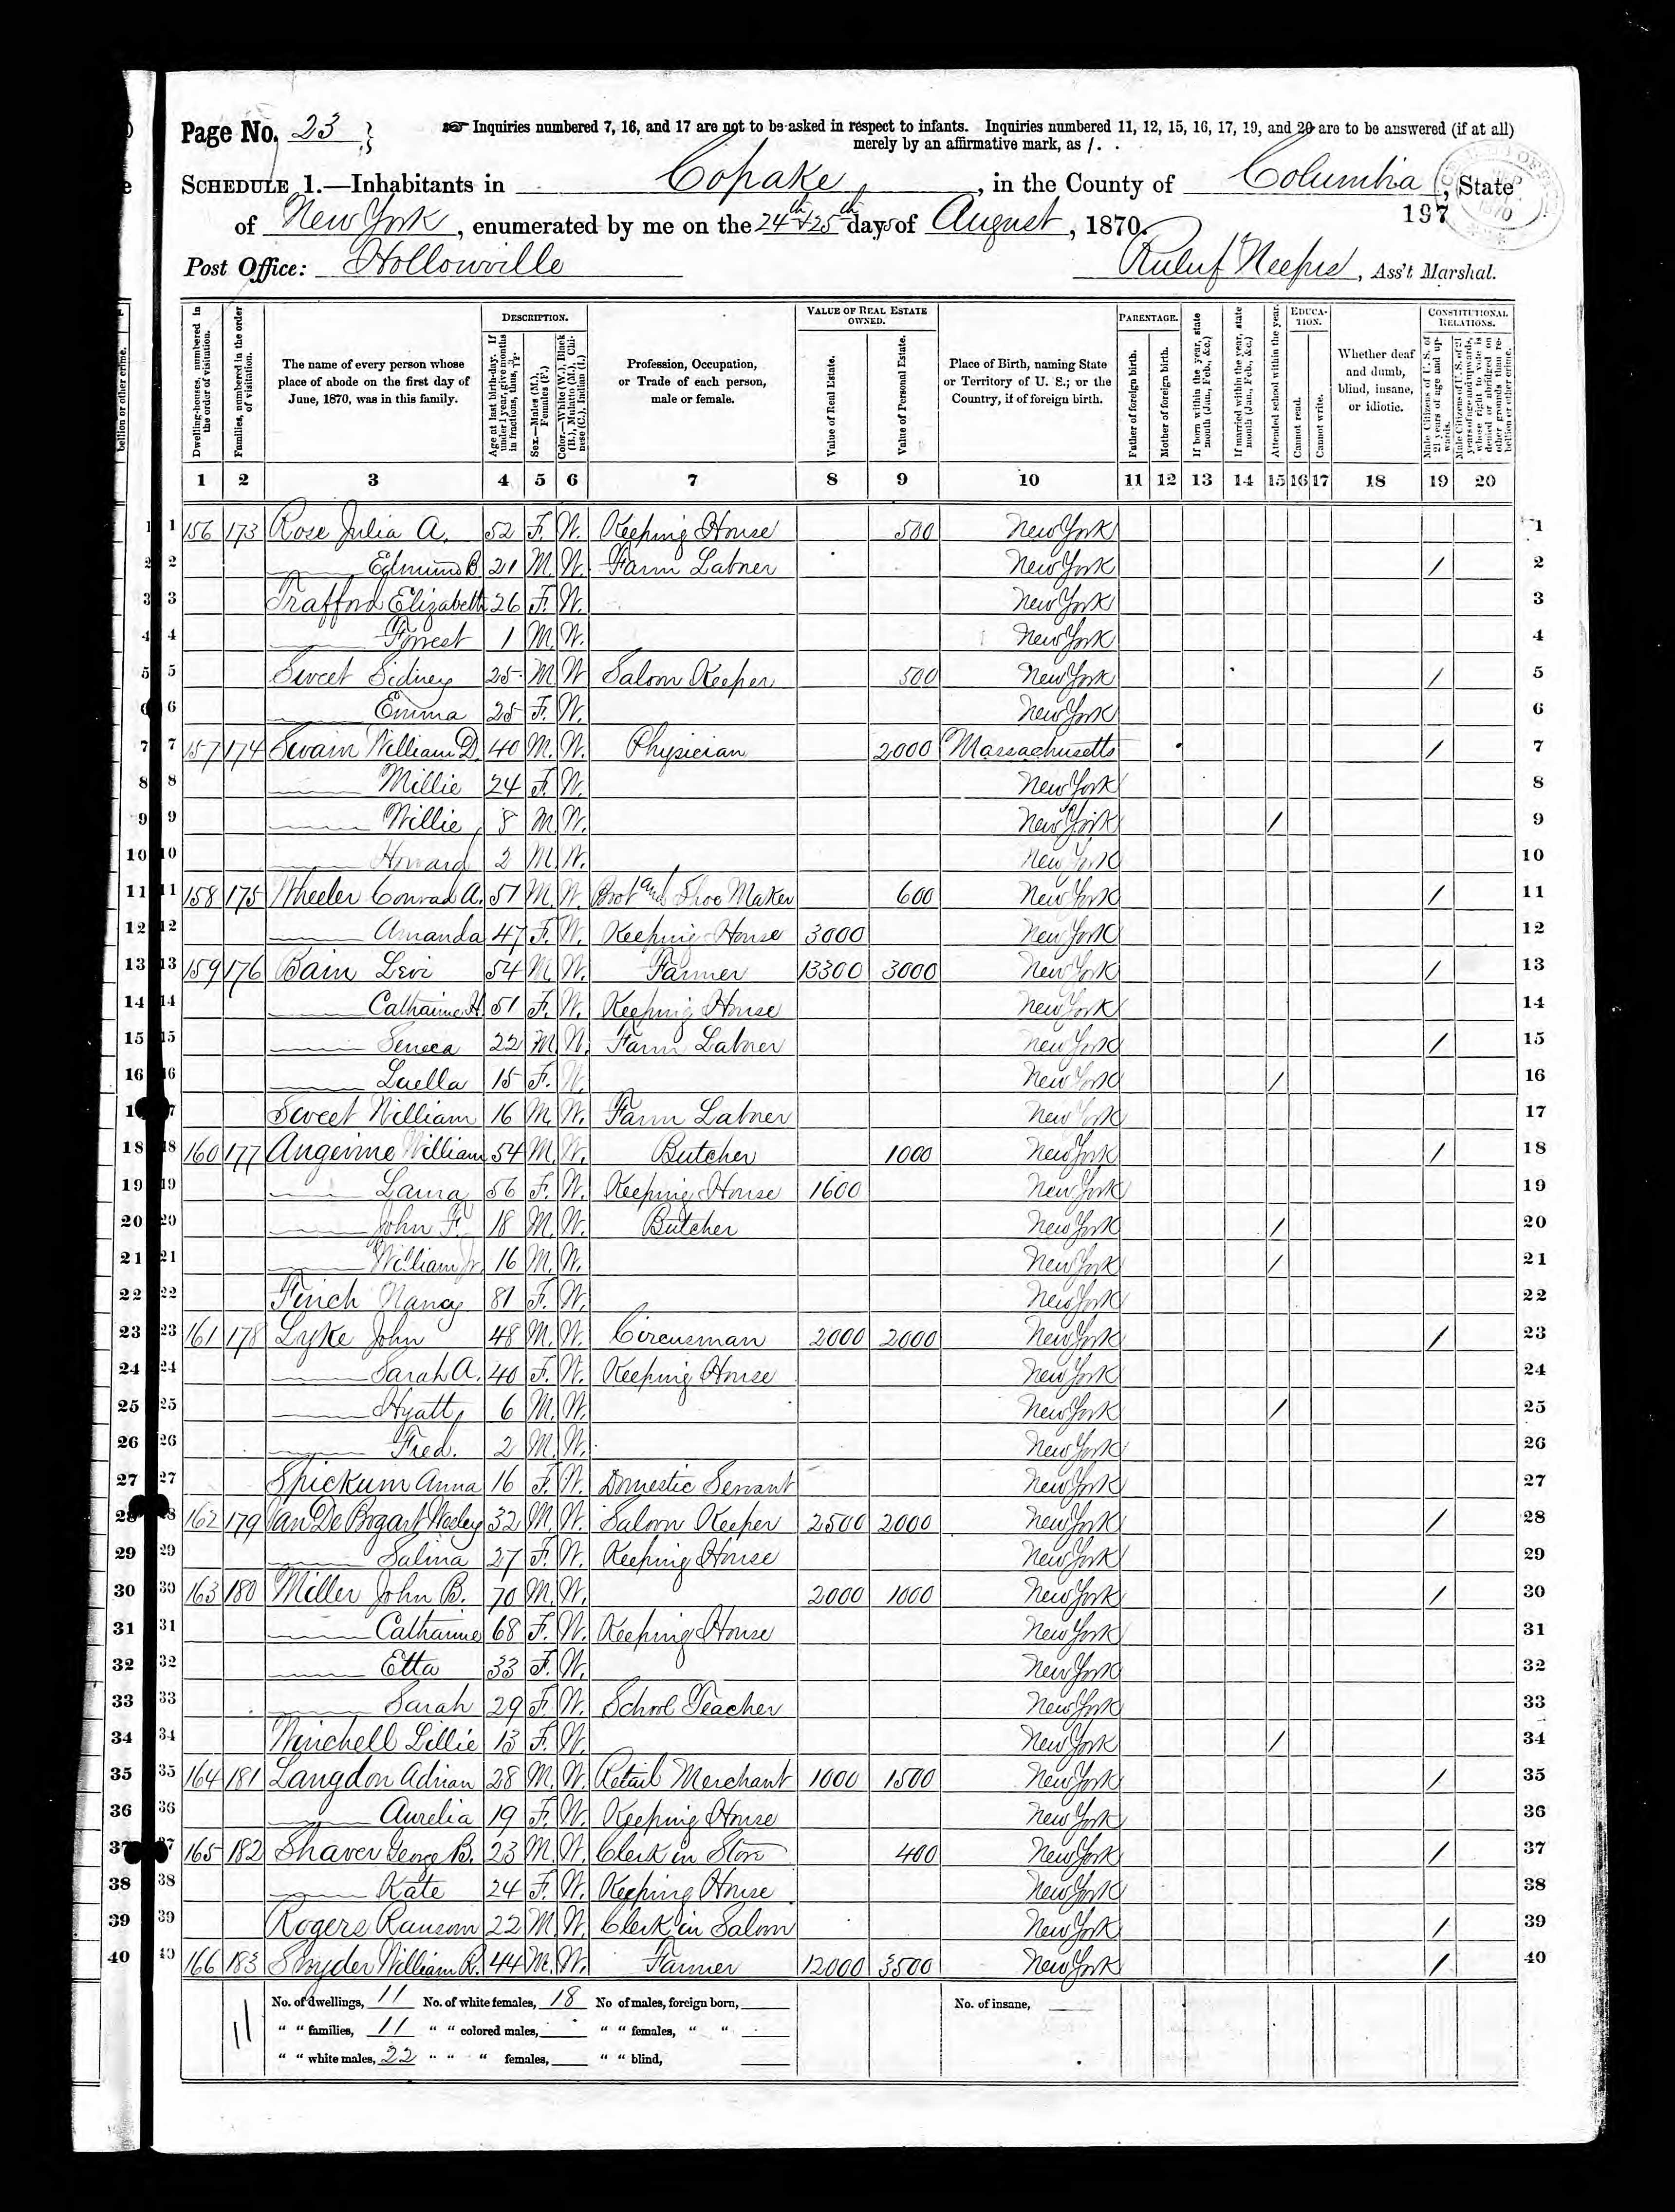 Page No. 23
Inquiries numbered 7, 16, and 17 are not to be asked in respect to infants. Inquiries numbered 11, 12, 15, 16, 17, 19, and 20 are to be answered (if at all)
merely by an affirmative mark, as /.
SCHEDULE 1.—Inhabitants in Copake, in the County of Columbia, State
of New York, enumerated by me on the 24th & 25th days of August, 1870.
197
Post Office: Hollowville
Ass't Marshal.
Dwelling-houses, numbered in the order of visitation.
Families, numbered in the order of visitation.
The name of every person whose place of abode on the first day of June, 1870, was in this family.
DESCRIPTION.
Age at last birth-day. If under 1 year, give months in fractions, thus, 3/12.
Sex.—Males (M.), Females (F.)
Color.—White (W.), Black (B.), Mulatto (M.), Chinese (C.), Indian (I.)
Profession, Occupation, or Trade of each person, male or female.
VALUE OF REAL ESTATE OWNED.
Value of Real Estate.
Value of Personal Estate.
Place of Birth, naming State or Territory of U. S.; or the Country, if of foreign birth.
PARENTAGE.
Father of foreign birth.
Mother of foreign birth.
If born within the year, state month (Jan., Feb., &c.)
If married within the year, state month (Jan., Feb., &c.)
Attended school within the year.
EDUCATION.
Cannot read.
Cannot write.
Whether deaf and dumb, blind, insane, or idiotic.
CONSTITUTIONAL RELATIONS.
Male Citizens of U. S. of 21 years of age and upwards.
Male Citizens of U. S. of 21 years of age and upwards, whose right to vote is denied or abridged on other grounds than rebellion or other crime.
1 2 3 4 5 6 7 8 9 10 11 12 13 14 15 16 17 18 19 20
1 156 173 Rose Julia A. 52 F. W. Keeping House 500 New York 1
2 Edmund B 21 M. W. Farm Laborer New York / 2
3 Trafford Elizabeth 26 F. W. New York 3
4 Forrest 1 M. W. New York 4
5 Sweet Sidney 25 M W Saloon Keeper 500 New York / 5
6 Emma 25 F. W. New York 6
7 157 174 Swain William D. 40 M. W. Physician 2000 Massachusetts / 7
8 Millie 24 F. W. New York 8
9 Willie 8 M W. New York / 9
10 Howard 2 M. W. New York 10
11 158 175 Wheeler Conrad A. 51 M. W. Boot and Shoe Maker 600 New York / 11
12 Amanda 47 F. W. Keeping House 3000 New York 12
13 159 176 Bain Levi 54 M. W. Farmer 13300 3000 New York / 13
14 Catharine H. 51 F. W. Keeping House New York 14
15 Seneca 22 M W. Farm Laborer New York / 15
16 Luella 15 F. W. New York / 16
Sweet William 16 M. W. Farm Laborer New York 17
18 160 177 Angevine William 54 M. W. Butcher 1000 New York / 18
19 Laura 56 F. W. Keeping House 1600 New York 19
20 John F. 18 M. W. Butcher New York / 20
21 William Jr. 16 M. W. New York / 21
22 Finch Nancy 81 F. W. New York 22
23 161 178 Lyke John 48 M. W. Circusman 2000 2000 New York / 23
24 Sarah A. 40 F. W. Keeping House New York 24
25 Hyatt 6 M. W. New York / 25
26 Fred. 2 M. W. New York 26
27 Spickum Anna 16 F. W. Domestic Servant New York 27
28 162 179 Van De Bogart Wesley 32 M. W. Saloon Keeper 2500 2000 New York / 28
29 Salina 27 F. W. Keeping House New York 29
30 163 180 Miller John B. 70 M. W. 2000 1000 New York / 30
31 Catharine 68 F. W. Keeping House New York 31
32 Etta 33 F. W. New York 32
33 Sarah 29 F. W. School Teacher New York 33
34 Winchell Lillie 13 F. W. New York / 34
35 164 181 Langdon Adrian 28 M. W. Retail Merchant 1000 1500 New York / 35
36 Aurelia 19 F. W. Keeping House New York 36
37 165 182 Shaver George B. 23 M. W. Clerk in Store 400 New York / 37
38 Kate 24 F. W. Keeping House New York 38
39 Rogers Ransom 22 M. W. Clerk in Saloon New York / 39
40 166 183 Snyder William R. 44 M. W. Farmer 12000 3500 New York / 40
11
No. of dwellings, 11 No. of white females, 18 No of males, foreign born, No. of insane,
" " families, 11 " " colored males, " " females, " "
" " white males, 22 " " " females, " " blind,